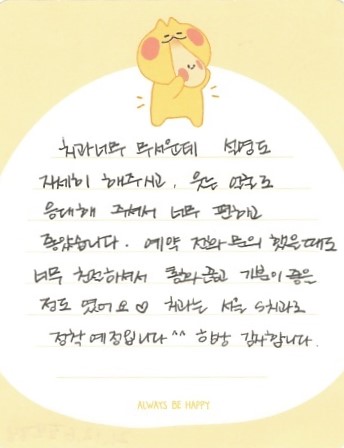 치과 너무 무서운데 설명도
자세히 해주시고, 웃는 얼굴로
응대해 주셔서 너무 편하고
좋았습니다. 예약 전화 문의 했을때도
너무 친절하셔서 통화 끊고 기분이 좋은
정도 였어요♡ 치과는 서울 S치과로
정착 예정입니다^^ 항상 감사합니다.
ALWAYS BE HAPPY.